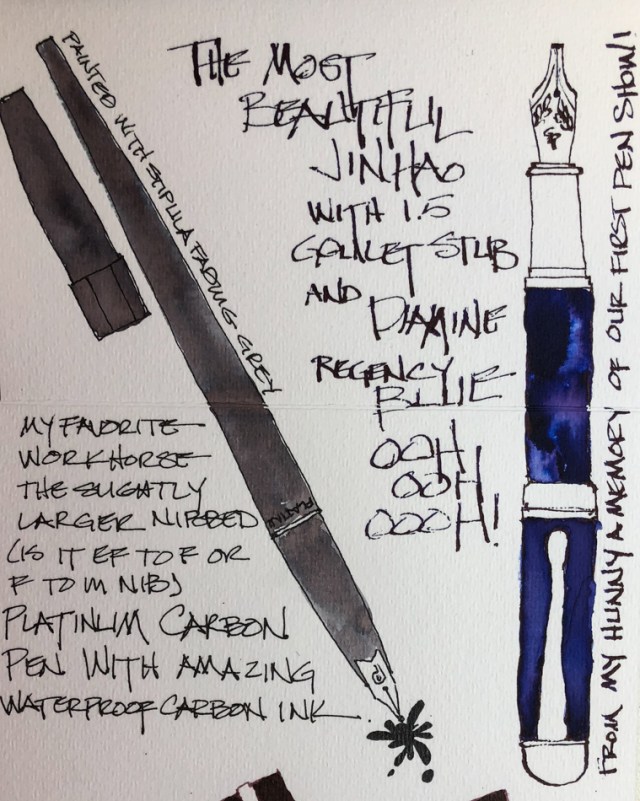 PAINTED WITH STIPULA FADING GREY
THE MOST
BEAUTIFUL
JINHAO
WITH 1.5
GOULET STUB
AND DIAMINE
REGENCY
BLUE
OOH!
OOH!
OOOH!
FROM MY HUNNY A MEMORY OF OUR FIRST PEN SHOW!
MY FAVORITE
WORKHORSE
THE SLIGHTLY
LARGER NIBBED
(IS IT EF TO F OR
F TO M NIB)
PLATINUM CARBON
PEN WITH AMAZING
WATERPROOF CARBON INK.
PLATINUM